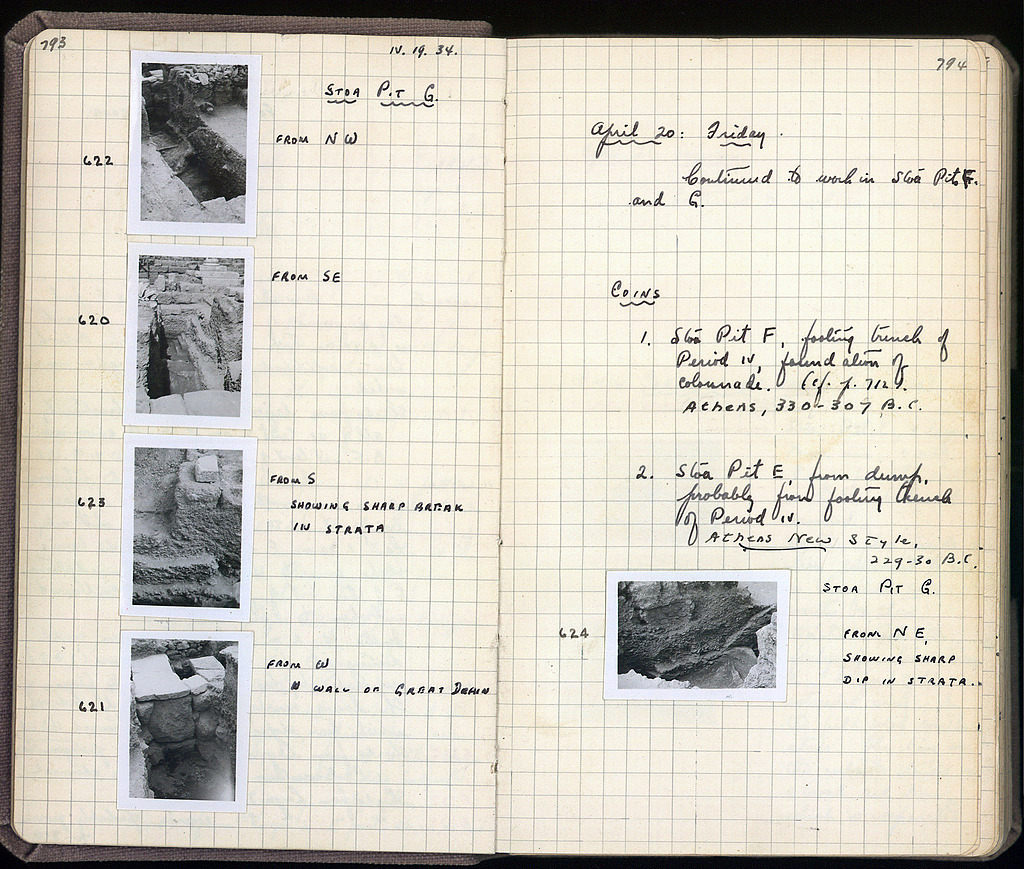 793
IV. 19. 34.
STOA PIT G.
622
FROM NW
620
FROM SE
623
FROM S
SHOWING SHARP BREAK
IN STRATA
621
FROM W
N WALL OF GREAT DRAIN
794
April 20: Friday.
Continued to work in Stoa Pits F.
and G.
COINS
1. Stoa Pit F, footing trench of
Period IV, foundation of
colonnade. (cf. p. 712).
Athens, 330-307 B.C.
2. Stoa Pit E, from dump,
probably from footing trench
of Period IV.
Athens New Style,
229-30 B.C.
STOA PIT G.
624
FROM NE,
SHOWING SHARP
DIP IN STRATA.